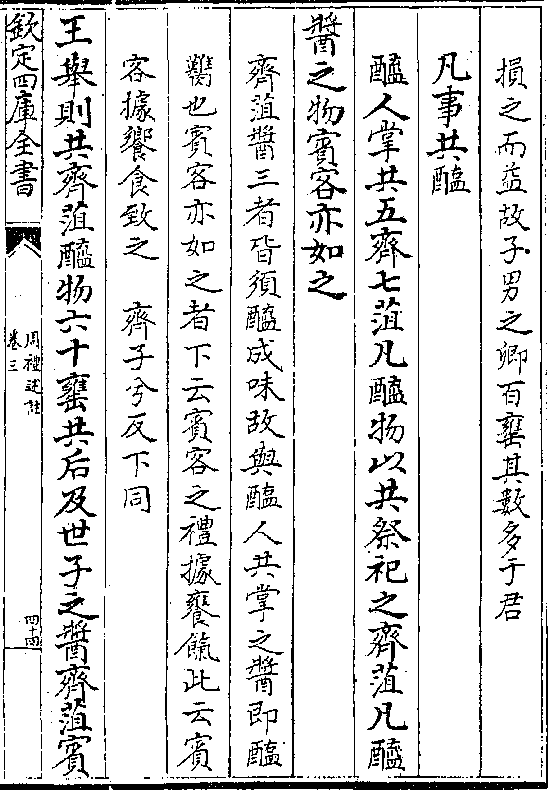 損之而益故子男之卿百罋其數多于君
凡事共醯
醯人掌共五齊七菹凡醯物以共祭祀之齊菹凡醯
醬之物賓客亦如之
齊菹醬三者皆須醯成味故與醯人共掌之醬即醯
也賓客亦如之者下云賓客之禮據饔餼此云賓
客據饗食致之　齊子兮反下同
王舉則共齊菹醯物六十罋共后及世子之醬齊菹賓
欽定四庫全書
周禮述註
卷三
四十四